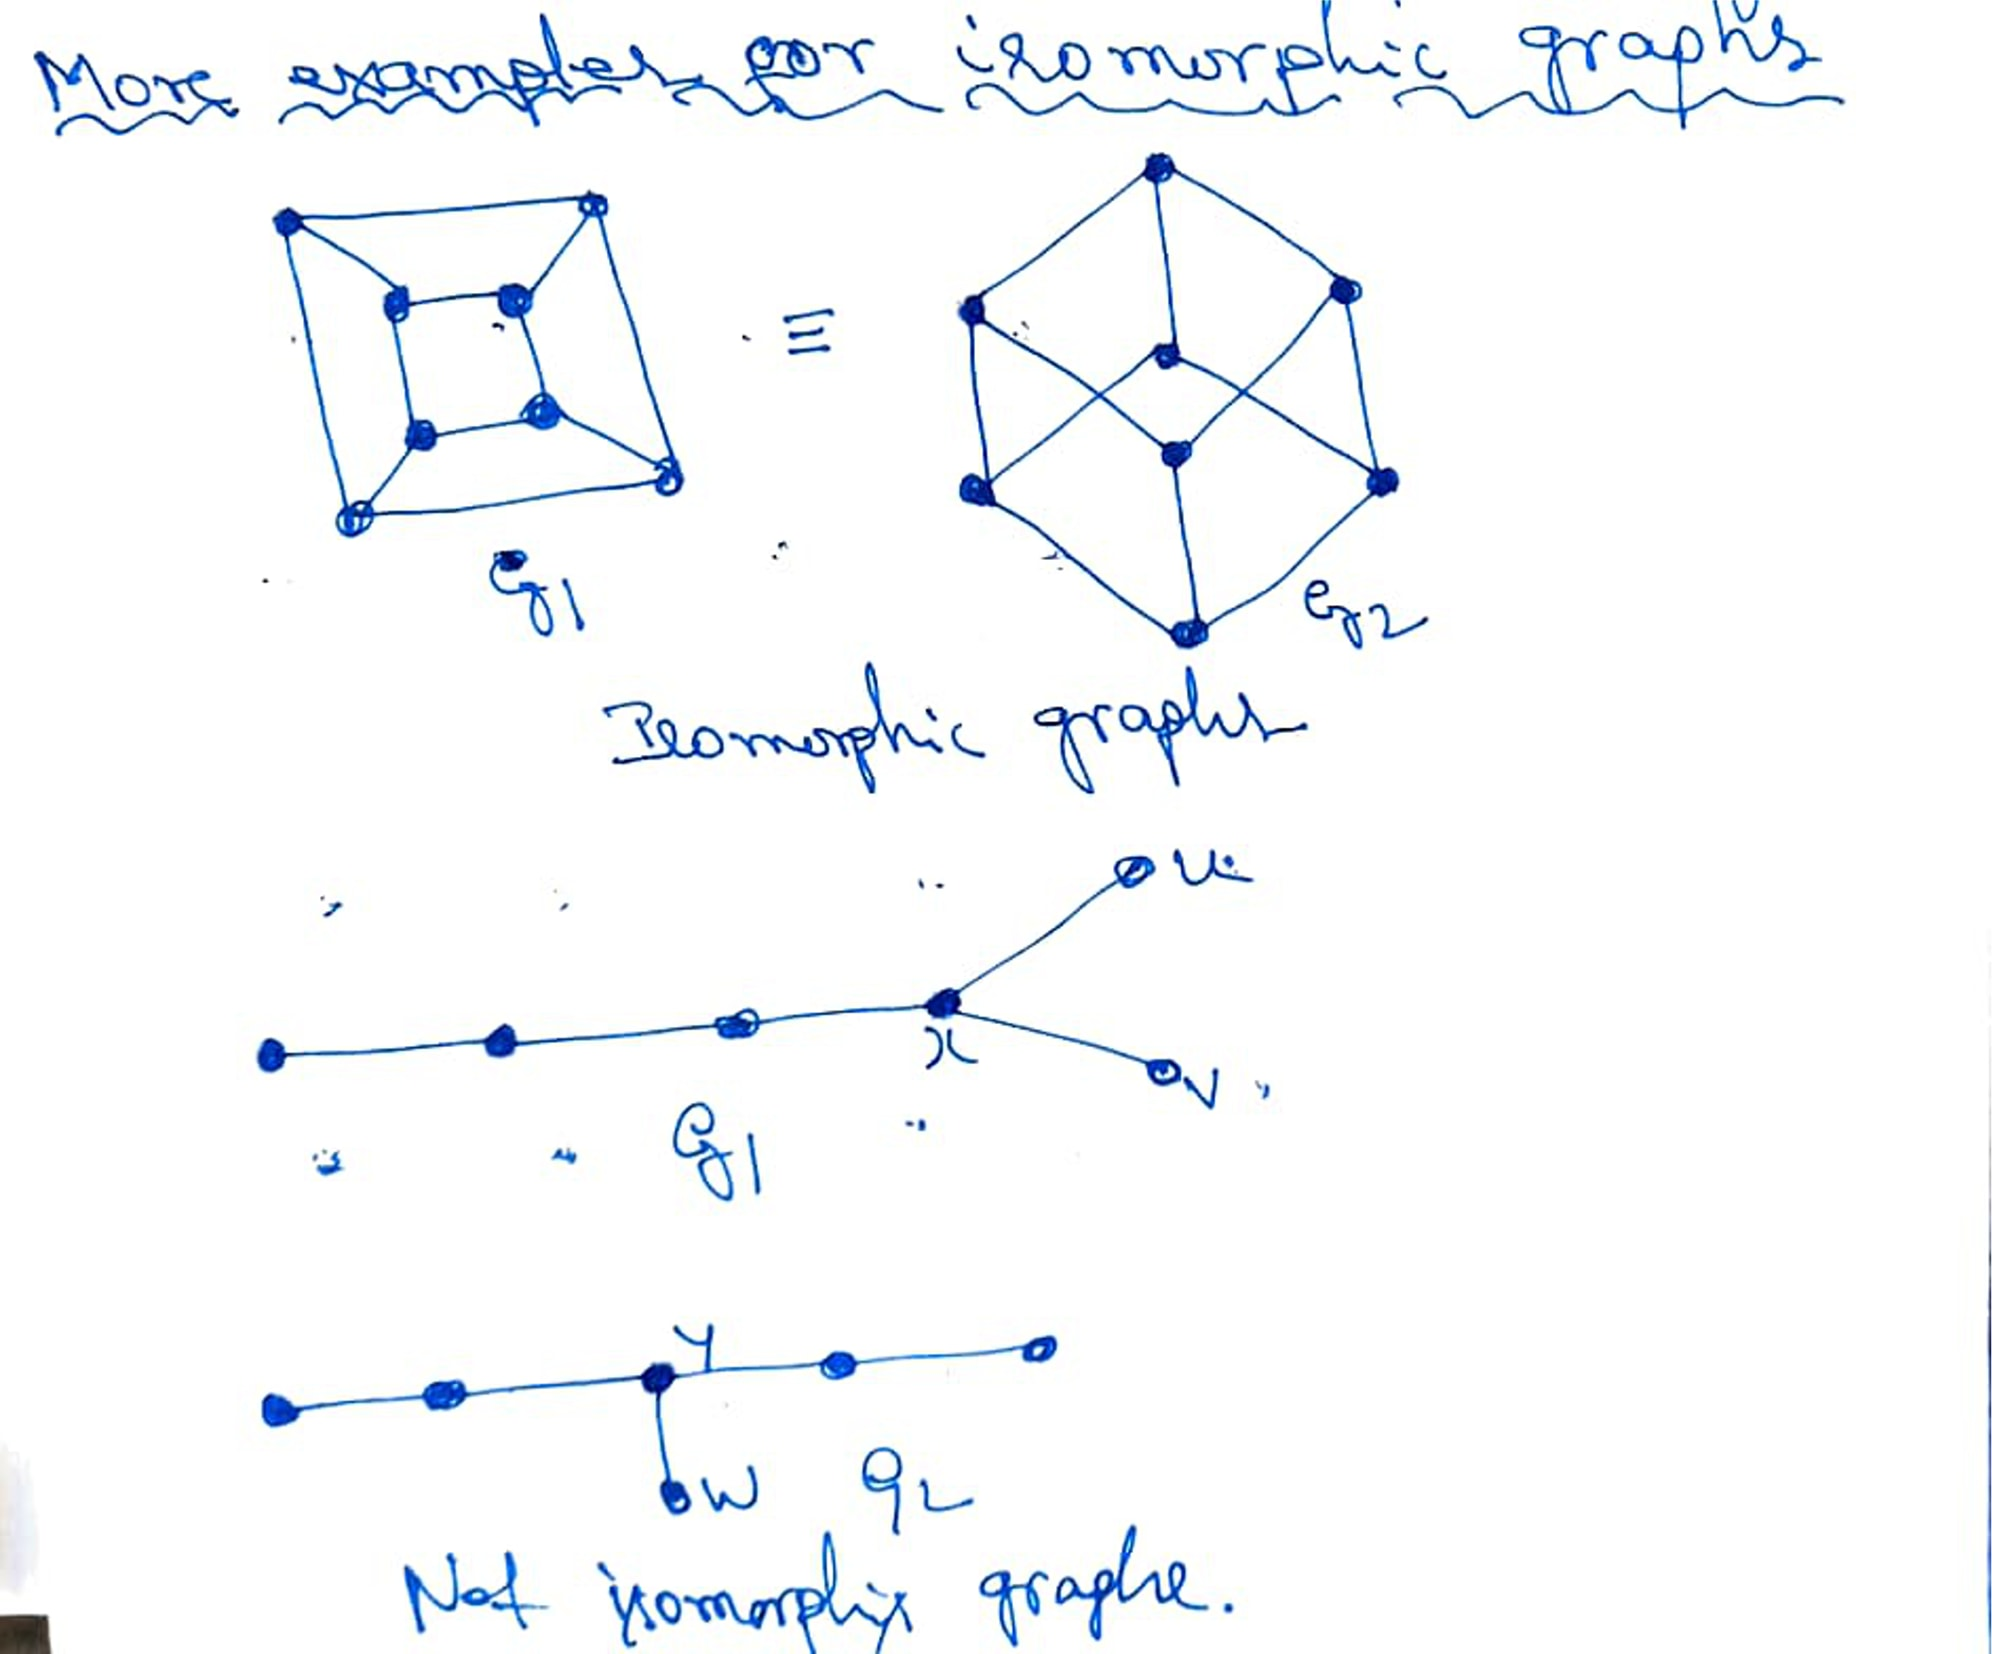 More examples for isomorphic graphs
≡
G1
G2
Isomorphic graphs
u
x
v
G1
y
w G2
Not isomorphic graphs.